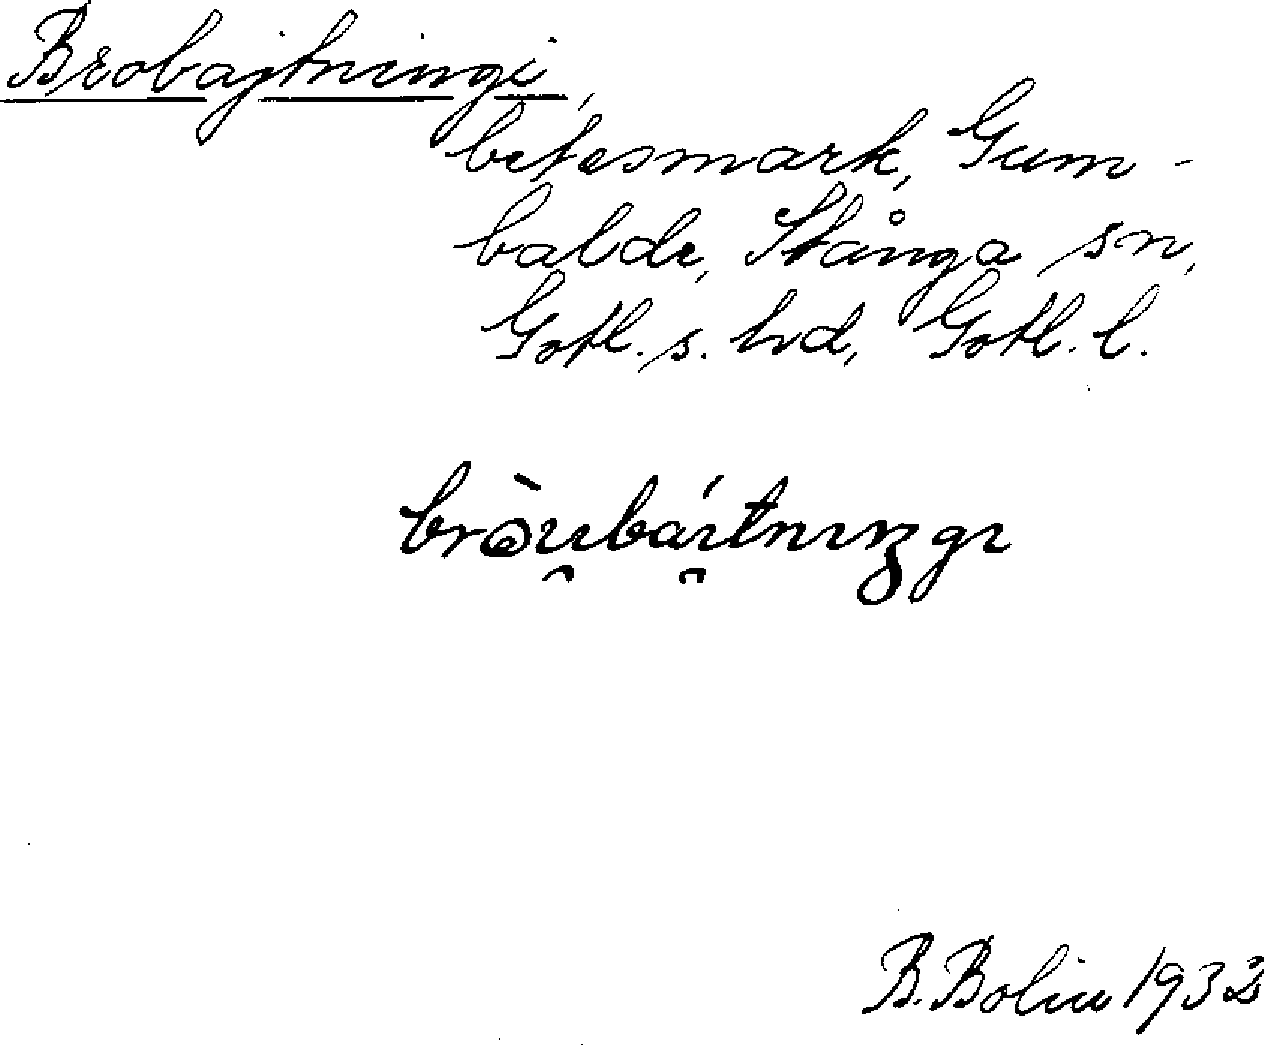 Brobajtningi,
betesmark, Gum-
balde, Stånga sn,
Gotl. s. hd, Gotl. l.
B. Bolin 1932